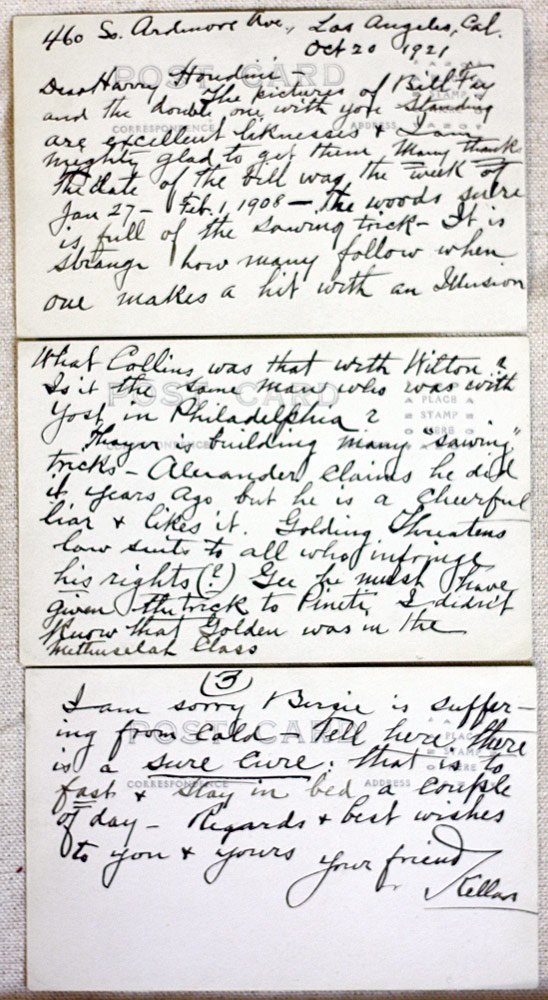 460 So. Ardmore Ave., Los Angeles, Cal.
Oct 20 1921
POST CARD
Dear Harry Houdini –
The pictures of Bill Fay
and the double one with you standing
CORRESPONDENCE
ADDRESS
are excellent likenesses & I am
mighty glad to get them Many thanks
The date of the bill was the week of
Jan 27 – Feb. 1, 1908 – the woods sure
is full of the sawing trick – It is
strange how many follow when
one makes a hit with an Illusion
What Collins was that with Wilton ?
Is it the same man who was with
POST CARD
PLACE
STAMP
HERE
Yost in Philadelphia ?
Thayer is building many "sawing"
tricks – Alexander claims he did
it years ago but he is a cheerful
liar & likes it. Golding threatens
law suits to all who infringe
his rights (?) Gee he must have
given the trick to Pinetti, I didn't
know that Golden was in the
Methuselah Class
(3)
I am sorry Bessie is suffer-
ing from cold – Tell her there
POST CARD
PLACE
STAMP
HERE
is a sure cure : that is to
CORRESPONDENCE
ADDRESS
fast & stay in bed a couple
of day – Regards & best wishes
to you & yours your friend
Kellar